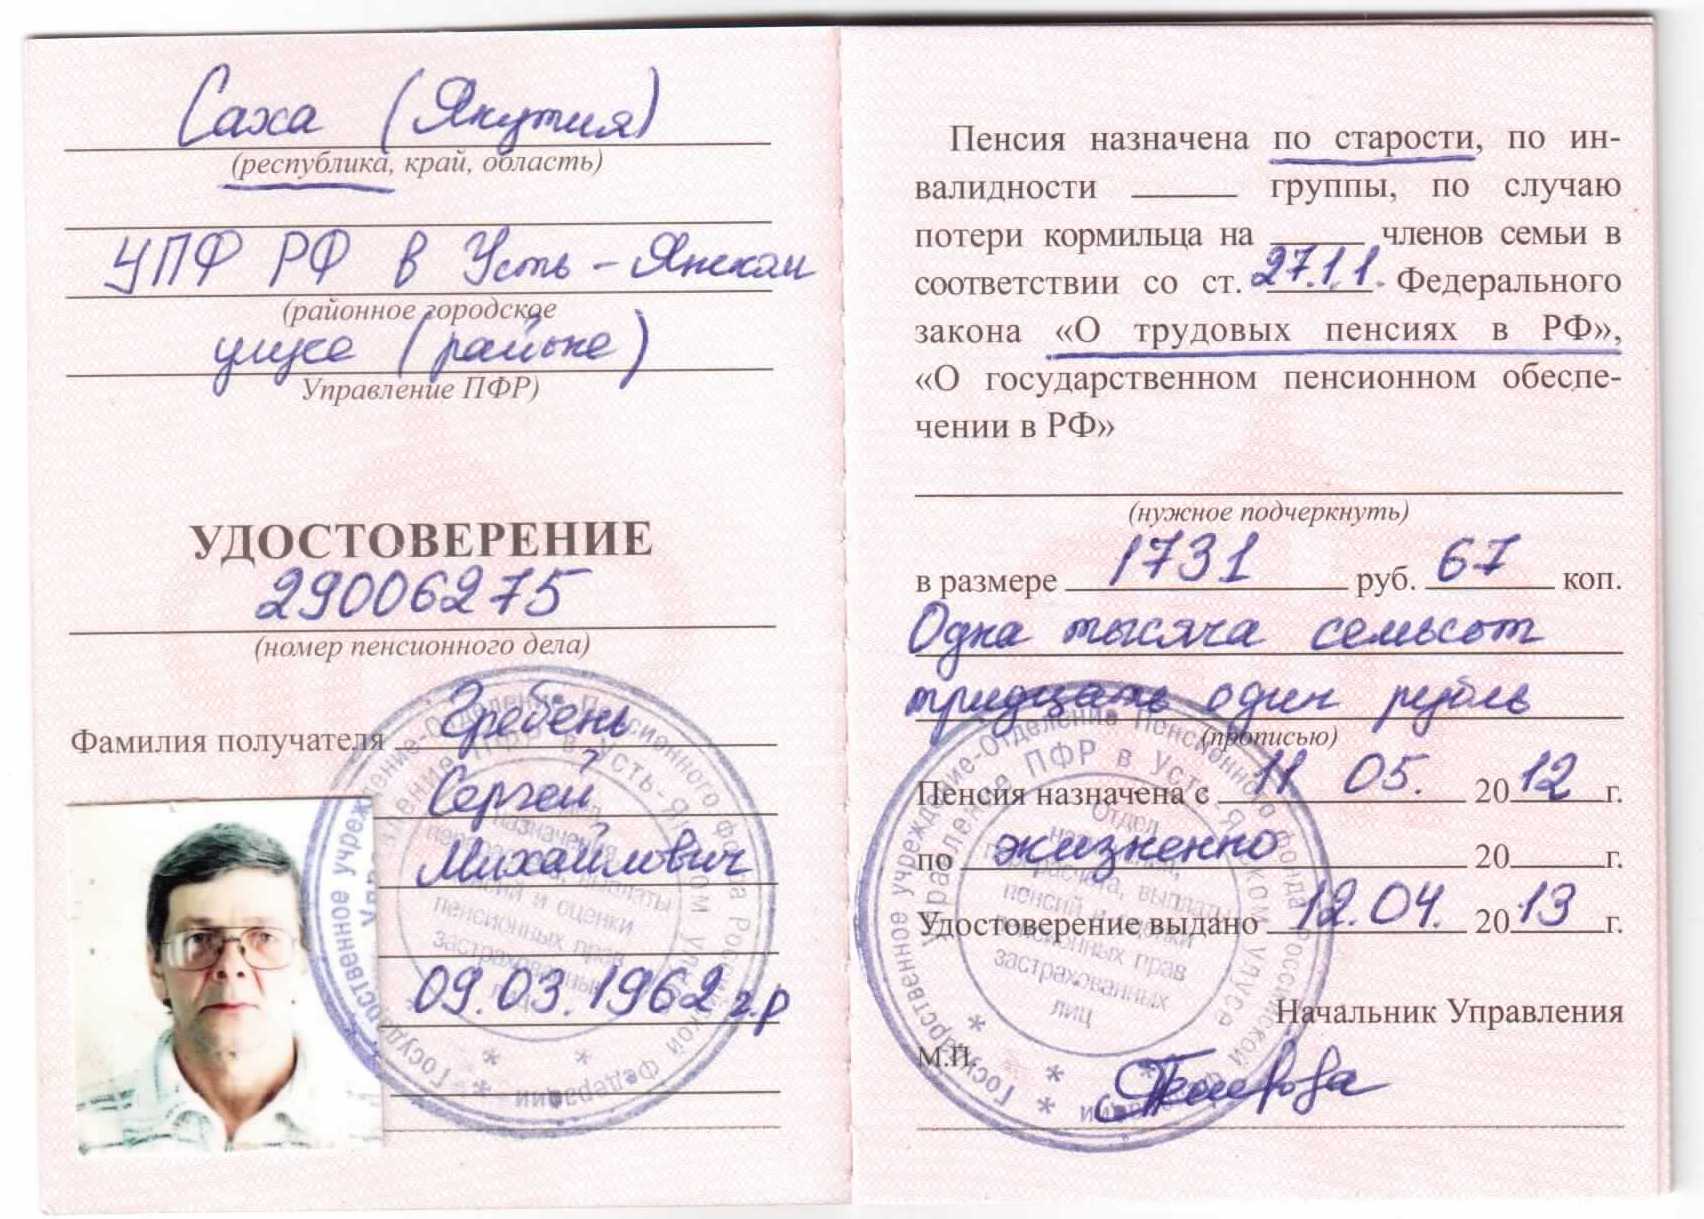 Саха (Якутия)
(республика, край, область)
УПФ РФ в Усть-Янском
(районное городское
улусе (районе)
Управление ПФР)
УДОСТОВЕРЕНИЕ
29006275
(номер пенсионного дела)
Фамилия получателя Гребень
Сергей
Михайлович
09.03.1962 г.р
Пенсия назначена по старости, по ин-
валидности группы, по случаю
потери кормильца на членов семьи в
соответствии со ст. 27.1.1. Федерального
закона «О трудовых пенсиях в РФ»,
«О государственном пенсионном обеспе-
чении в РФ»
(нужное подчеркнуть)
в размере 1731 руб. 67 коп.
Одна тысяча семьсот
тридцать один рубль
(прописью)
Пенсия назначена с 11 05. 2012 г.
по жизненно 20 г.
Удостоверение выдано 12.04. 2013 г.
Начальник Управления
М.П.
Государственное учреждение-Отделение Пенсионного фонда Российской Федерации
Управление ПФР в Усть-Янском улусе
Отдел
назначения,
перерасчета, выплаты
пенсий и оценки
пенсионных прав
застрахованных
лиц